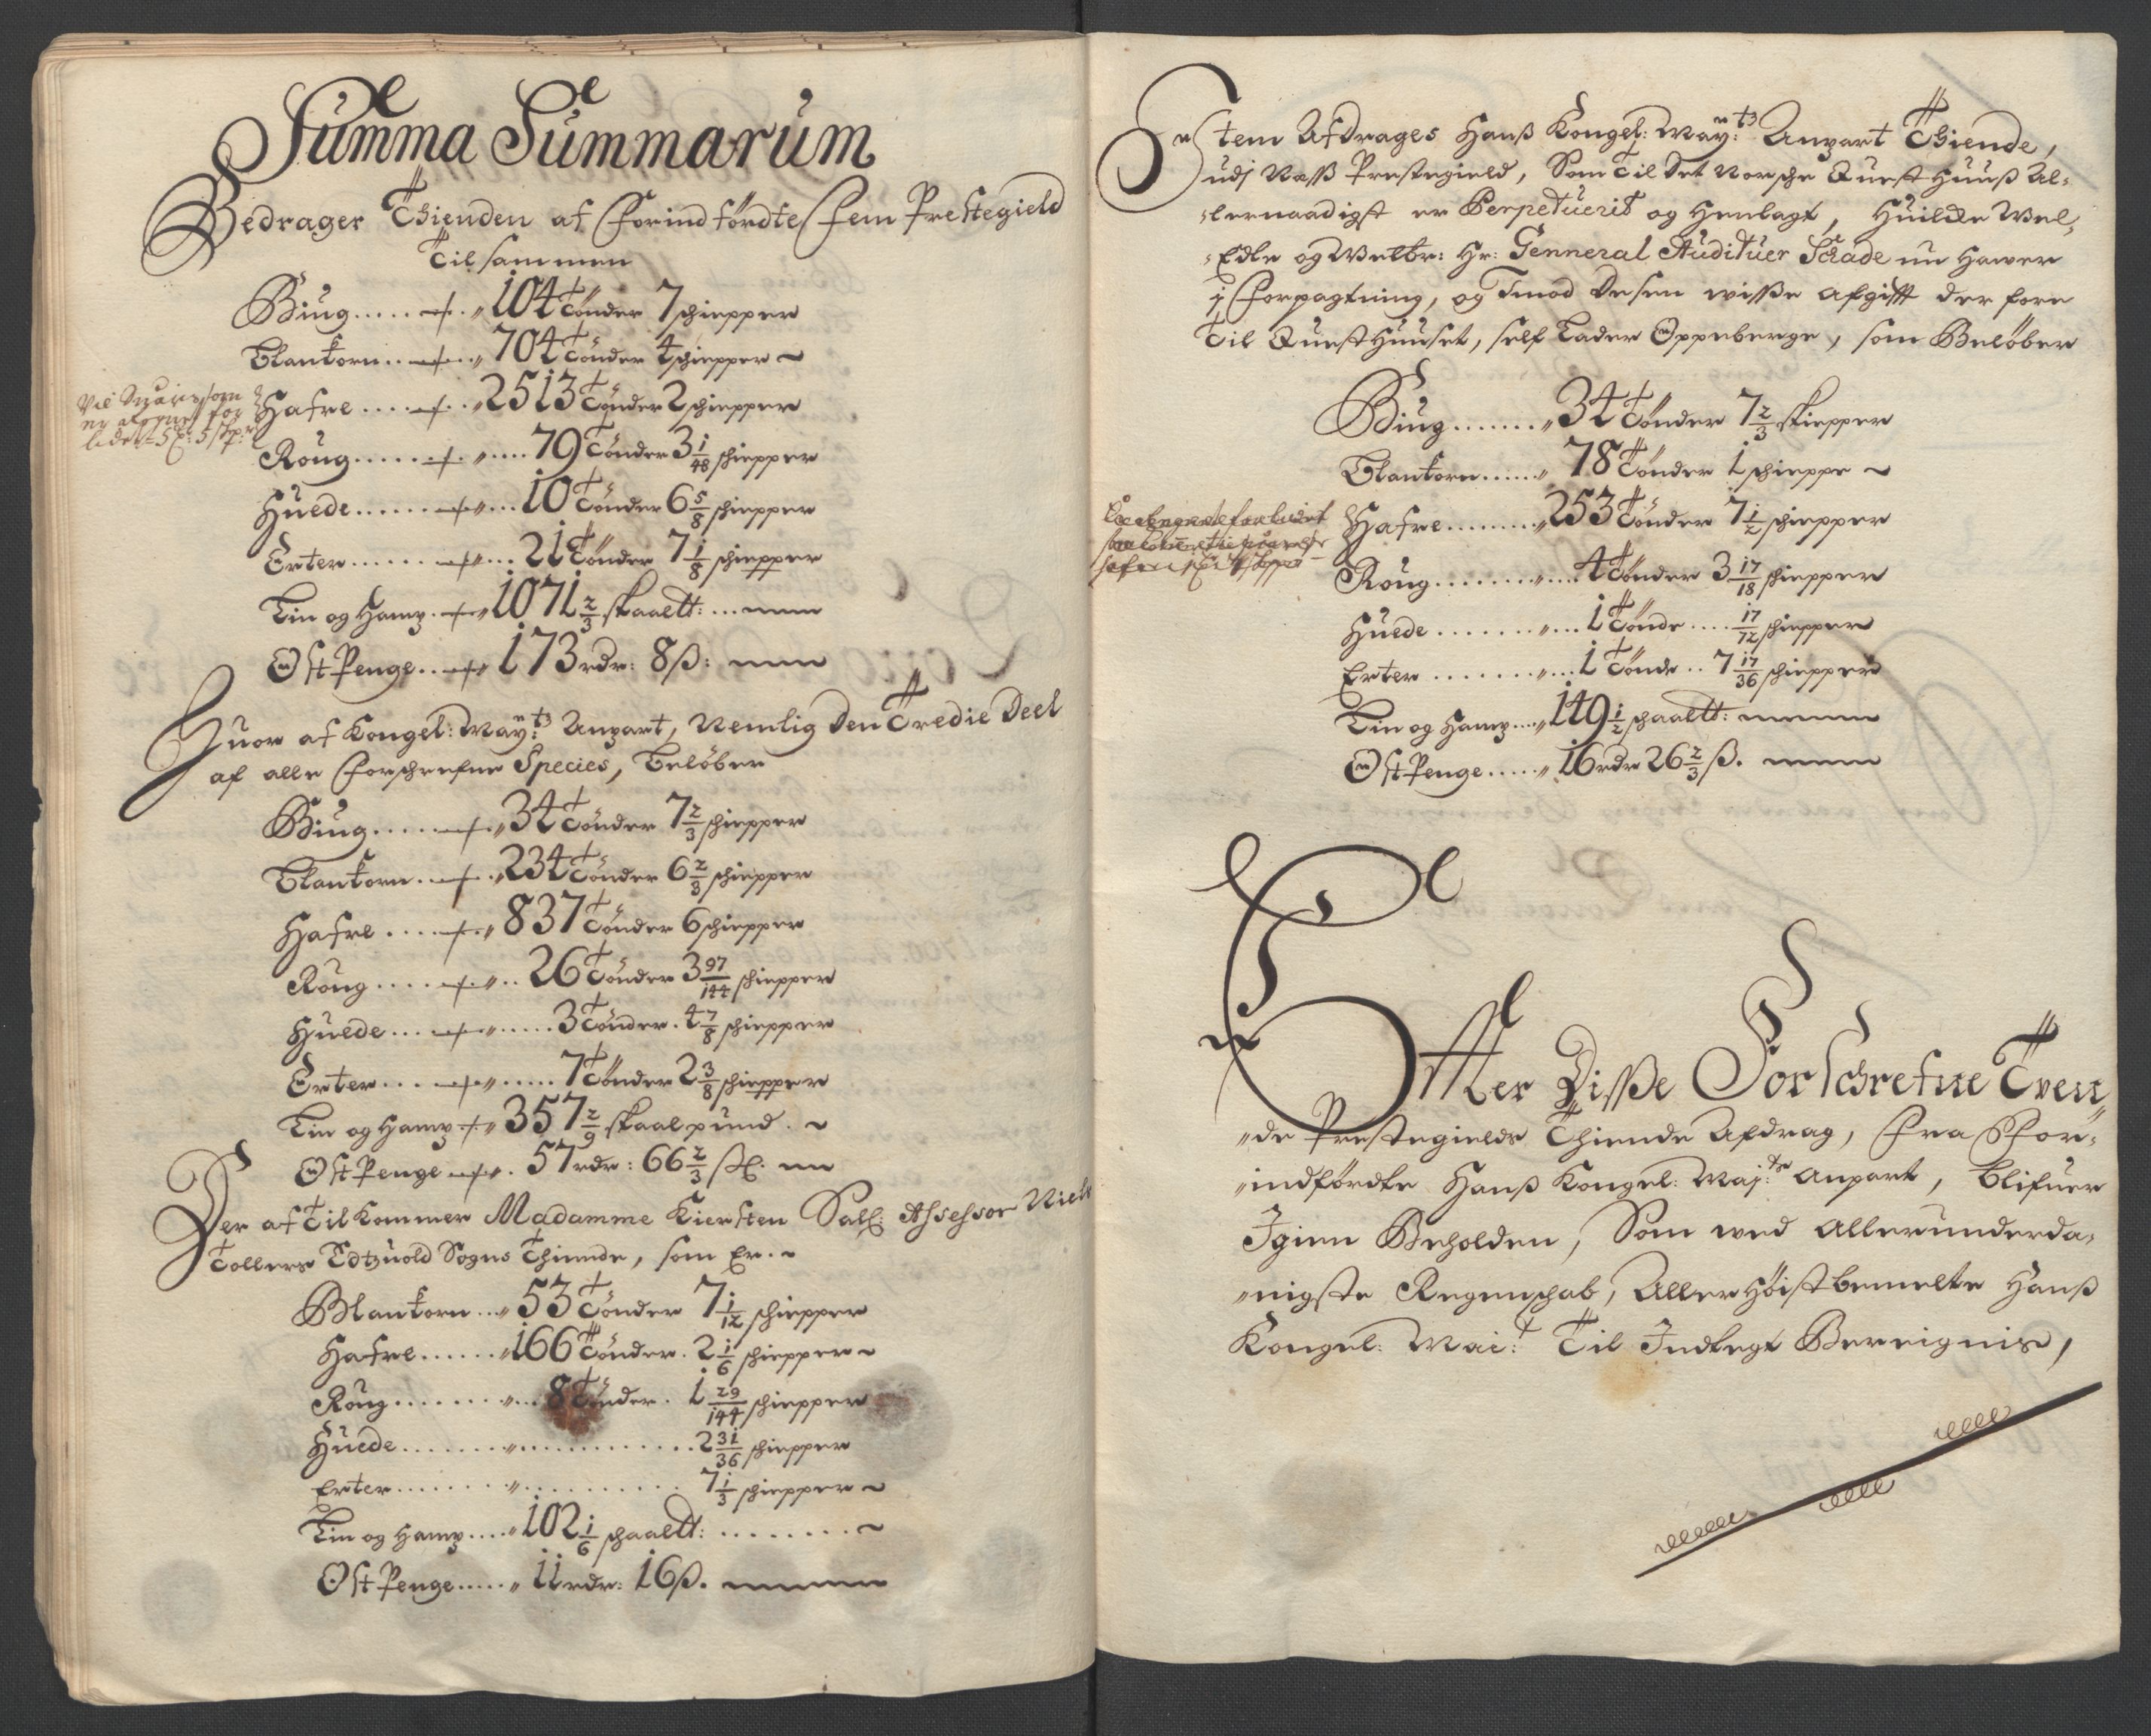 Summa Summarum
Bedrager Thienden af forindførdte fem Prestegield
Tilsammen
Biug..... 104 Tønder 7 schiepper
Blankorn.. 704 Tønder 4 schiepper
Hafre..... 2513 Tønder 2 schiepper
Roug...... 79 Tønder 3 1/48 schiepper
Huede...... 10 Tønder 6 5/8 schiepper
Erter...... 21 Tønder 7 1/8 schiepper
Lin og Hamp. 1071 2/3 skaaltt:
Ost Penge.. 173 rdr: 8 ß:
Huor af Kongel: Maytz Anpart, Nemlig den Tredie Deel
af alle forschrefne Species, beløber
Biug..... 34 Tønder 7 2/3 schiepper
Blankorn.. 234 Tønder 6 2/3 schiepper
Hafre.... 837 Tønder 6 schiepper
Roug.... 26 Tønder 3 97/144 schiepper
Huede... 3 Tønder. 4 7/8 schiepper
Erter... 7 Tønder 2 3/8 schiepper
Lin og Hamp 357 2/9 skaalpund.
Ost Penge 57 rdr: 66 2/3 ß.
Der af Tilkommer Madamme Kiersten Sal: Assessor Niels
Tollers Edtzuold Sogns Thiende, som Er.
Blankorn... 53 Tønder 7 1/12 schiepper
Hafre...... 166 Tønder. 2 1/6 schiepper
Roug....... 8 Tønder. 1 29/144 schiepper
Huede....... 2 31/36 schiepper
Erter....... 7 1/3 schiepper
Lin og Hamp.... 102 1/6 schaaltt:
Ost Penge..... 11 rdr: 16 ß.
Item Afdrages Hanß Kongel: Maytz Anpart Thiende,
udj Næss Prestegield, Som Til det Norsche Quest Huuß Al-
lernaadigst er Perpetuerit og Henlagt, Huilcke Wel-
Edle og Welbr: Hr: Genneral Audituer Schade nu Hawer
j Forpagtning, og Imod desen wisse afgifft der fore
Til Quest Huuset, self lader Oppeberge, som Beløber
Biug....... 34 Tønder 7 2/3 skiepper
Blankorn...... 78 Tønder 1 schieppe
Hafre........ 253 Tønder 7 1/2 schiepper
Roug........ 4 Tønder 3 17/18 schiepper
Huede....... 1 Tønde.... 17/72 schiepper
Erter....... 1 Tønde.. 7 17/36 schiepper
Lin og Hamp.... 149 1/2 schaaltt:
Ost Penge..... 16 rdr 26 2/3 ß.
Efter Disse Forschrefne Tven
de Prestegields Thiende Afdrag, fra For-
indførdte Hanß Kongel: Maj:ts Anpart, blifuer
Igien Beholden, Som wed Allerunderda-
nigste Regenschab, Aller Høistbemelte Hanß
Kongel: Mai:t Til Indtegt Bereignis,